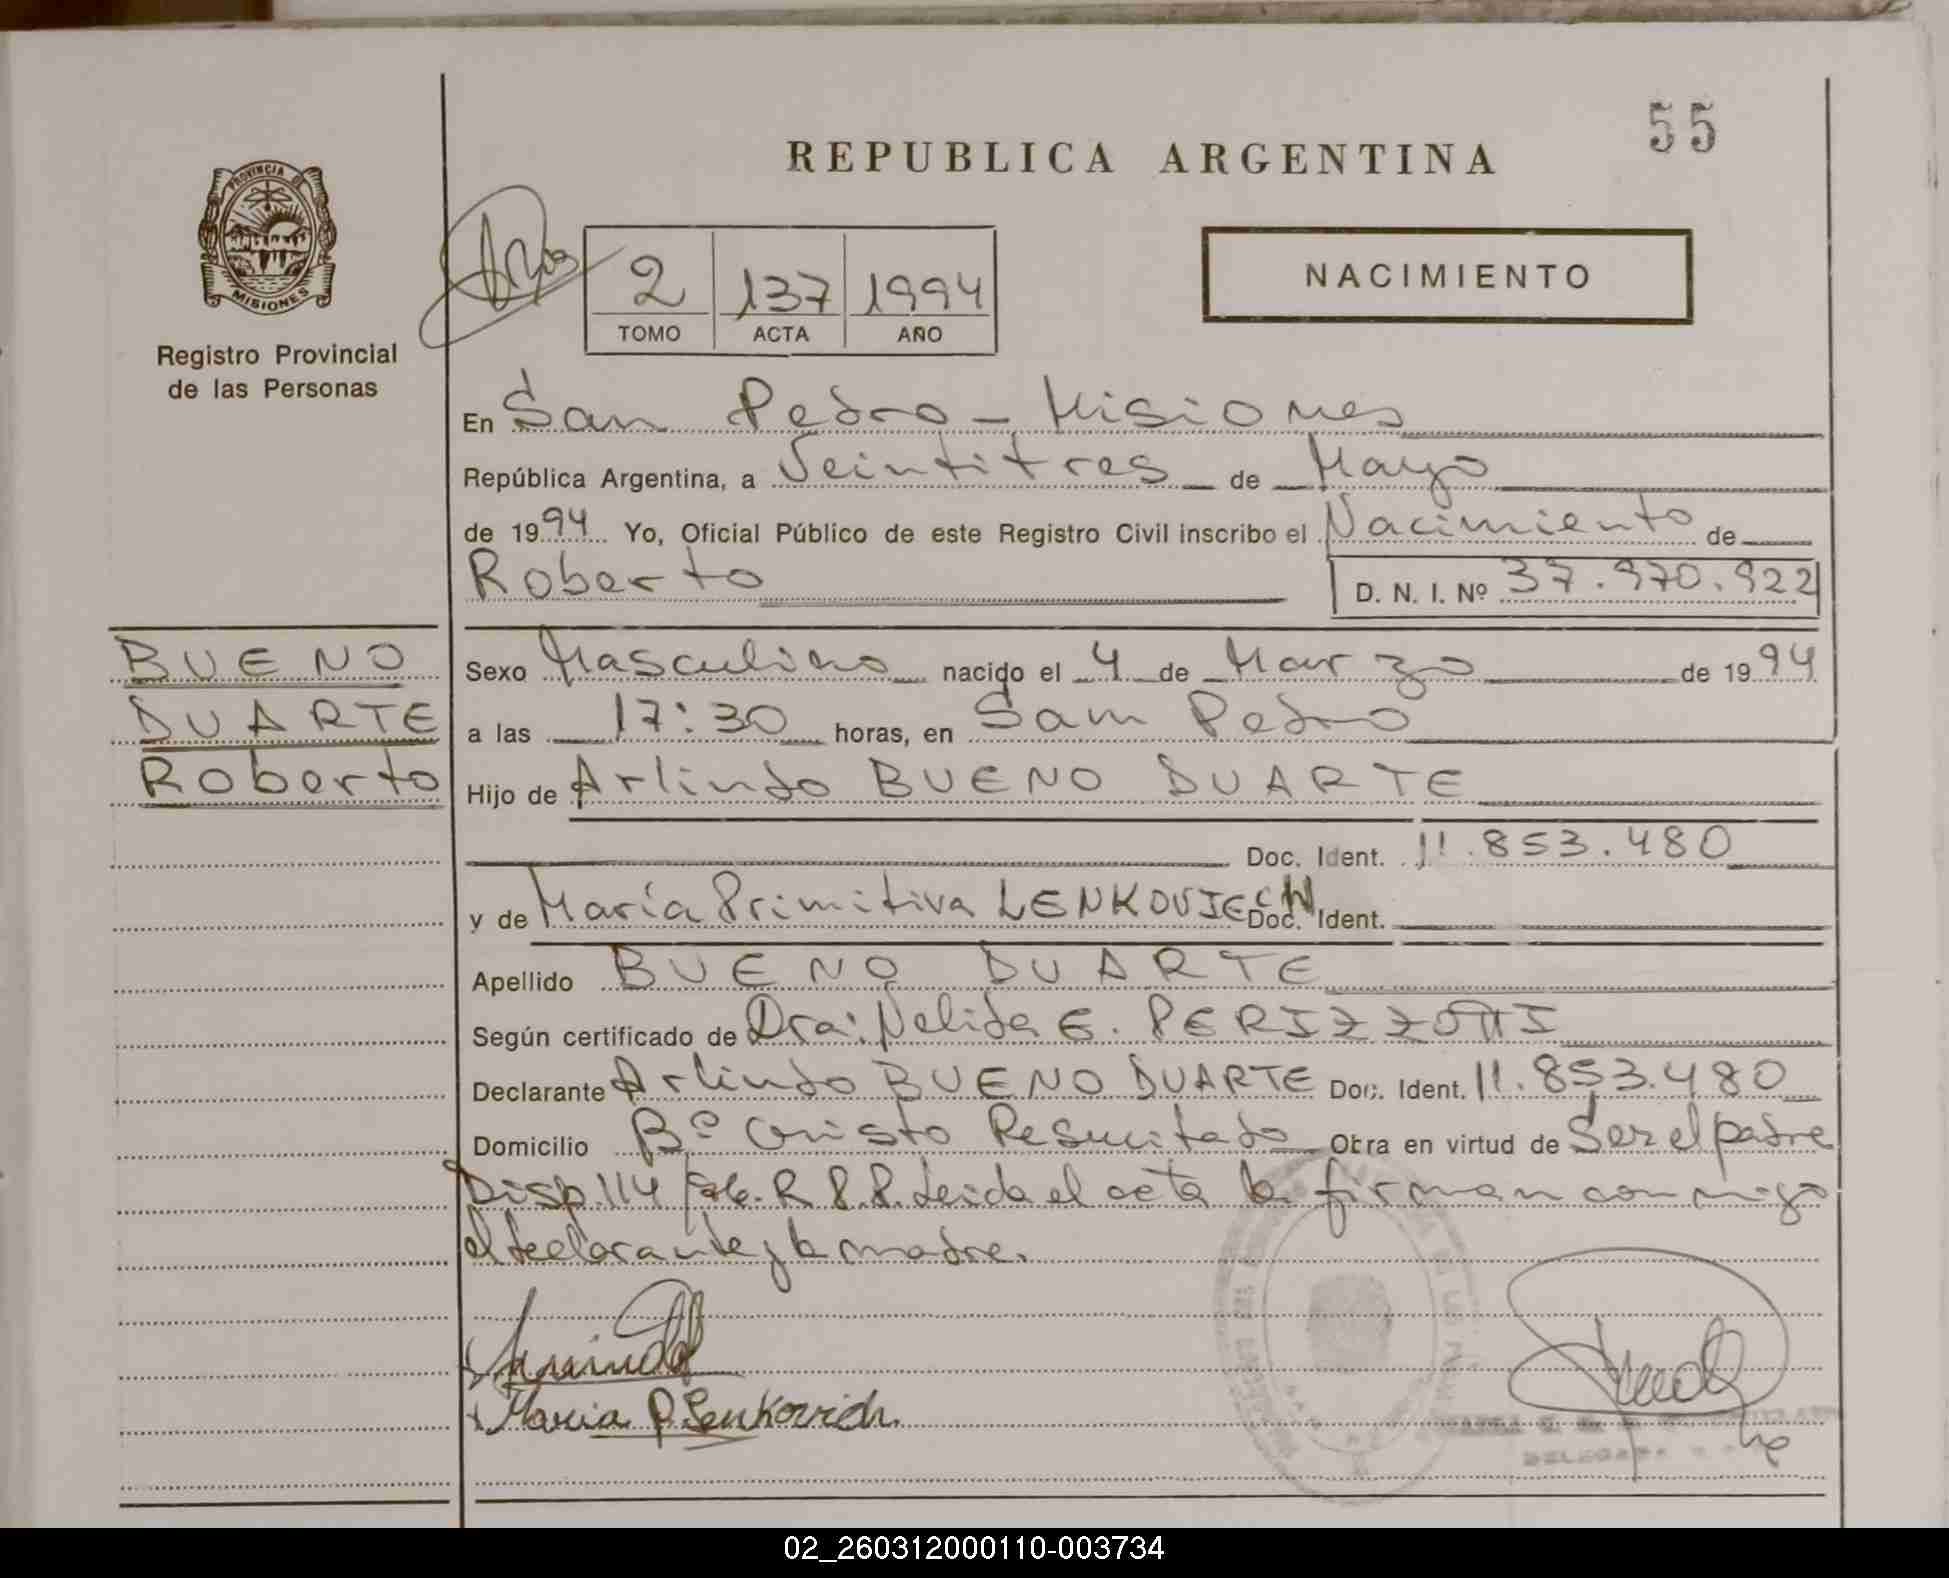 55
REPUBLICA ARGENTINA
PROVINCIA DE
MISIONES
Registro Provincial
de las Personas
2 137 1994
TOMO ACTA AÑO
NACIMIENTO
En San Pedro - Misiones
República Argentina, a Veintitres de Mayo
de 1994 Yo, Oficial Público de este Registro Civil inscribo el Nacimiento de
Roberto D. N. I. Nº 37.970.922
BUENO
DUARTE
Roberto
Sexo Masculino nacido el 4 de Marzo de 1994
a las 17:30 horas, en San Pedro
Hijo de Arlindo BUENO DUARTE
Doc. Ident. 11.853.480
y de María Primitiva LENKOVIECH Doc. Ident.
Apellido BUENO DUARTE
Según certificado de Dra: Nelida E. PERIZZOTTI
Declarante Arlindo BUENO DUARTE Doc. Ident. 11.853.480
Domicilio Bº Cristo Resucitado Obra en virtud de Ser el padre
Disp. 114 R.P.P. Leida el acta la firman conmigo
el declarante y la madre.
Maria P. Lenkovich
02_260312000110-003734